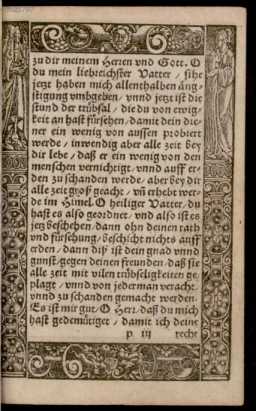 zu dir meinem Herren vnd Gott. O
du mein liebreichster Vatter / sihe
jetzt haben mich allenthalben äng-
stigung vmbgeben / vnnd jetzt ist die
stund der trübsal / die du von ewig-
keit an hast fürsehen / damit dein die-
ner ein wenig von aussen probiert
werde / inwendig aber alle zeit bey
dir lebe / daß er ein wenig von den
menschen vernichtigt / vnnd auff er-
den zu schanden werde / aber bey dir
alle zeit groß geacht / vñ erhebt wer-
de im Himel. O heiliger Vatter / du
hast es also geordnet / vnd also ist es
jetz beschehen / dann ohn deinen rath
vnd fürsehung / beschicht nichts auff
erden / dann diß ist dein gnad vnnd
gunst / gegen deinen freunden / daß sie
alle zeit mit vilen trübseligkeiten ge-
plagt / vnnd von jederman veracht /
vnnd zu schanden gemacht werden.
Es ist mir gut / O Herr / daß du mich
hast gedemütiget / damit ich deine
p iij recht